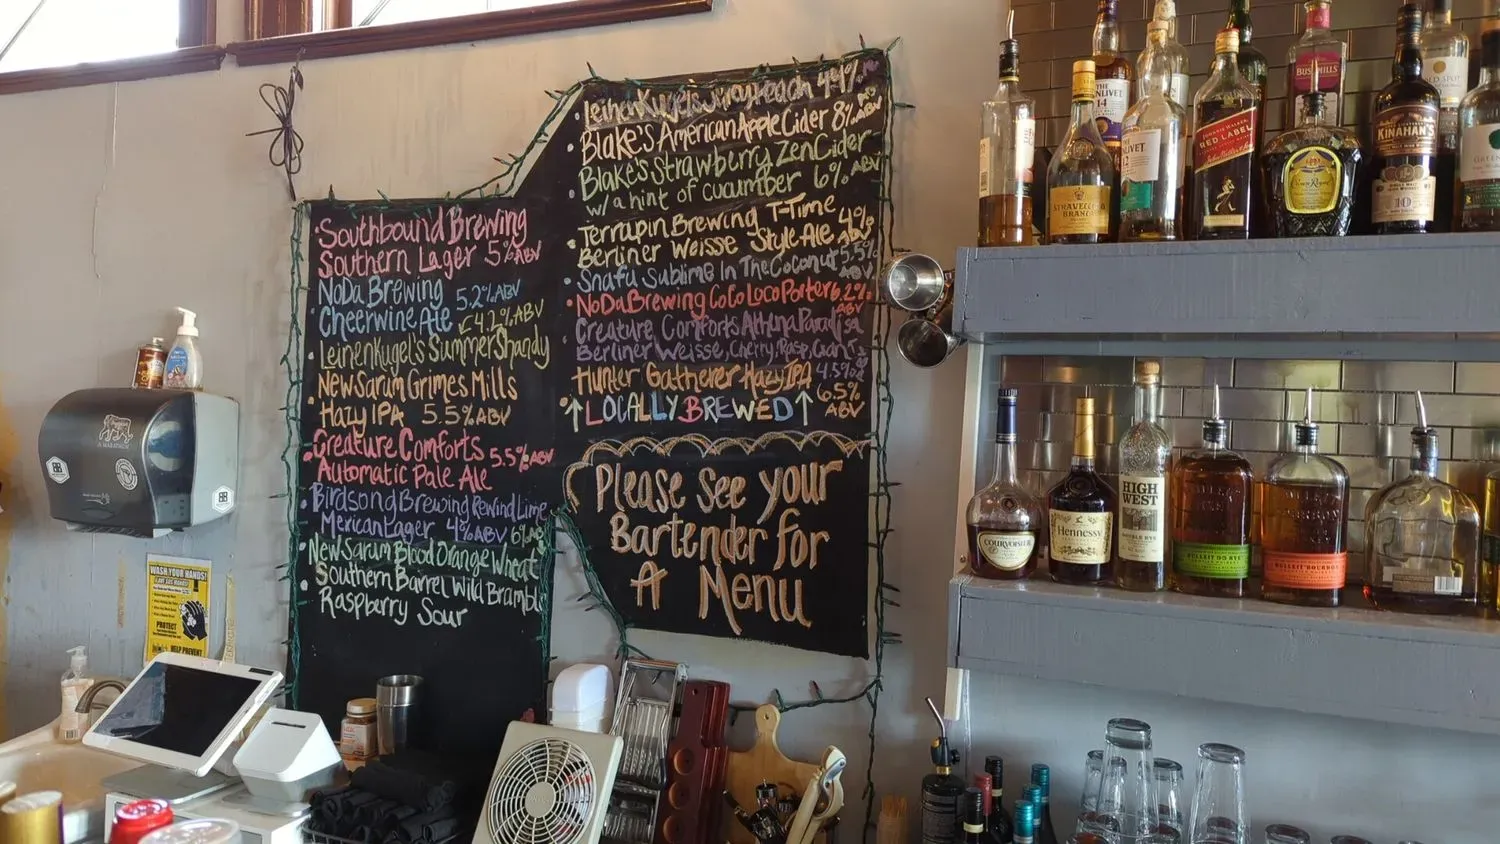 Southbound Brewing
Southern Lager 5% ABV
NoDa Brewing
Cheerwine Ale 5.2% ABV
4.2% ABV
Leinenkugel's Summer Shandy
New Sarum Grimes Mills
Hazy IPA 5.5% ABV
Creature Comforts
Automatic Pale Ale 5.5% ABV
Birdsong Brewing Rewind Lime
Mexican Lager 4% ABV
New Sarum Blood Orange Wheat
Southern Barrel Wild Bramble
Raspberry Sour
Leinenkugel's
Blake's American Apple Cider 8% ABV
Blake's Strawberry Zen Cider
w/ a hint of cucumber 6% ABV
Terrapin Brewing T-Time
Berliner Weisse Style Ale 4% ABV
Snafu Sublime In The Coconut 5.5% ABV
NoDa Brewing CoCo Loco Porter 6.2%
Creature Comforts Athena Paradisa
Berliner Weisse, Cherry, Rasp,
4.5%
Hunter Gatherer Hazy IPA
6.5% ABV
↑LOCALLY BREWED↑
Please See your
Bartender for
A Menu
WASH YOUR HANDS!
PROTECT
HELP PREVENT
14
BUSHMILLS
JOHNNIE WALKER
RED LABEL
Crown Royal
KINAHAN'S
10
12
BRANDY
COURVOISIER
Hennessy
HIGH
WEST
DOUBLE RYE
BULLEIT 95 RYE
BULLEIT BOURBON